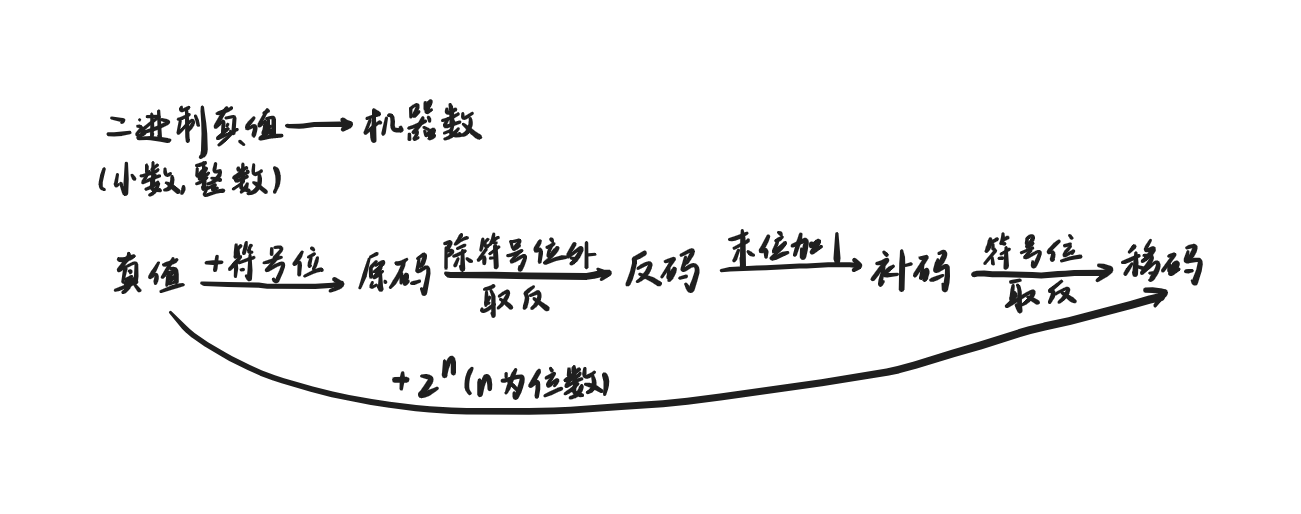 二进制真值→机器数
(小数,整数)
真值 +符号位 原码 除符号位外取反 反码 末位加1 补码 符号位取反 移码
+2^n(n为位数)